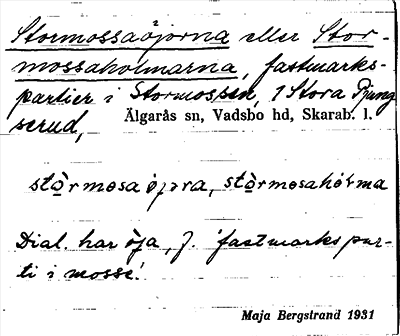 Stormossaöjorna eller Stor-
mossaholmarna, fastmarks-
partier i Stormossen, 1 Stora Bjung
serud,
Älgarås sn, Vadsbo hd, Skarab. l.
Dial. har öja, f. 'fastmarkspar-
ti i mosse'.
Maja Bergstrand 1931